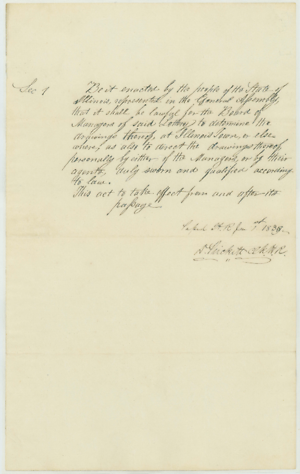 Sec 1 Be it enacted by the people of the State of
Illinois, represented in the General Assembly,
that it shall be lawful for the Board of
Managers of said lottery to determine the
drawings thereof, at Illinois Town, or else
where, as also to direct the drawings thereof
personally by either of the Managers, or by their
agents, duly sworn and qualified according
to law.
This act to take effect from and after its
passage.
H. R. Jan 1839
D. Prickett Clk H.R.